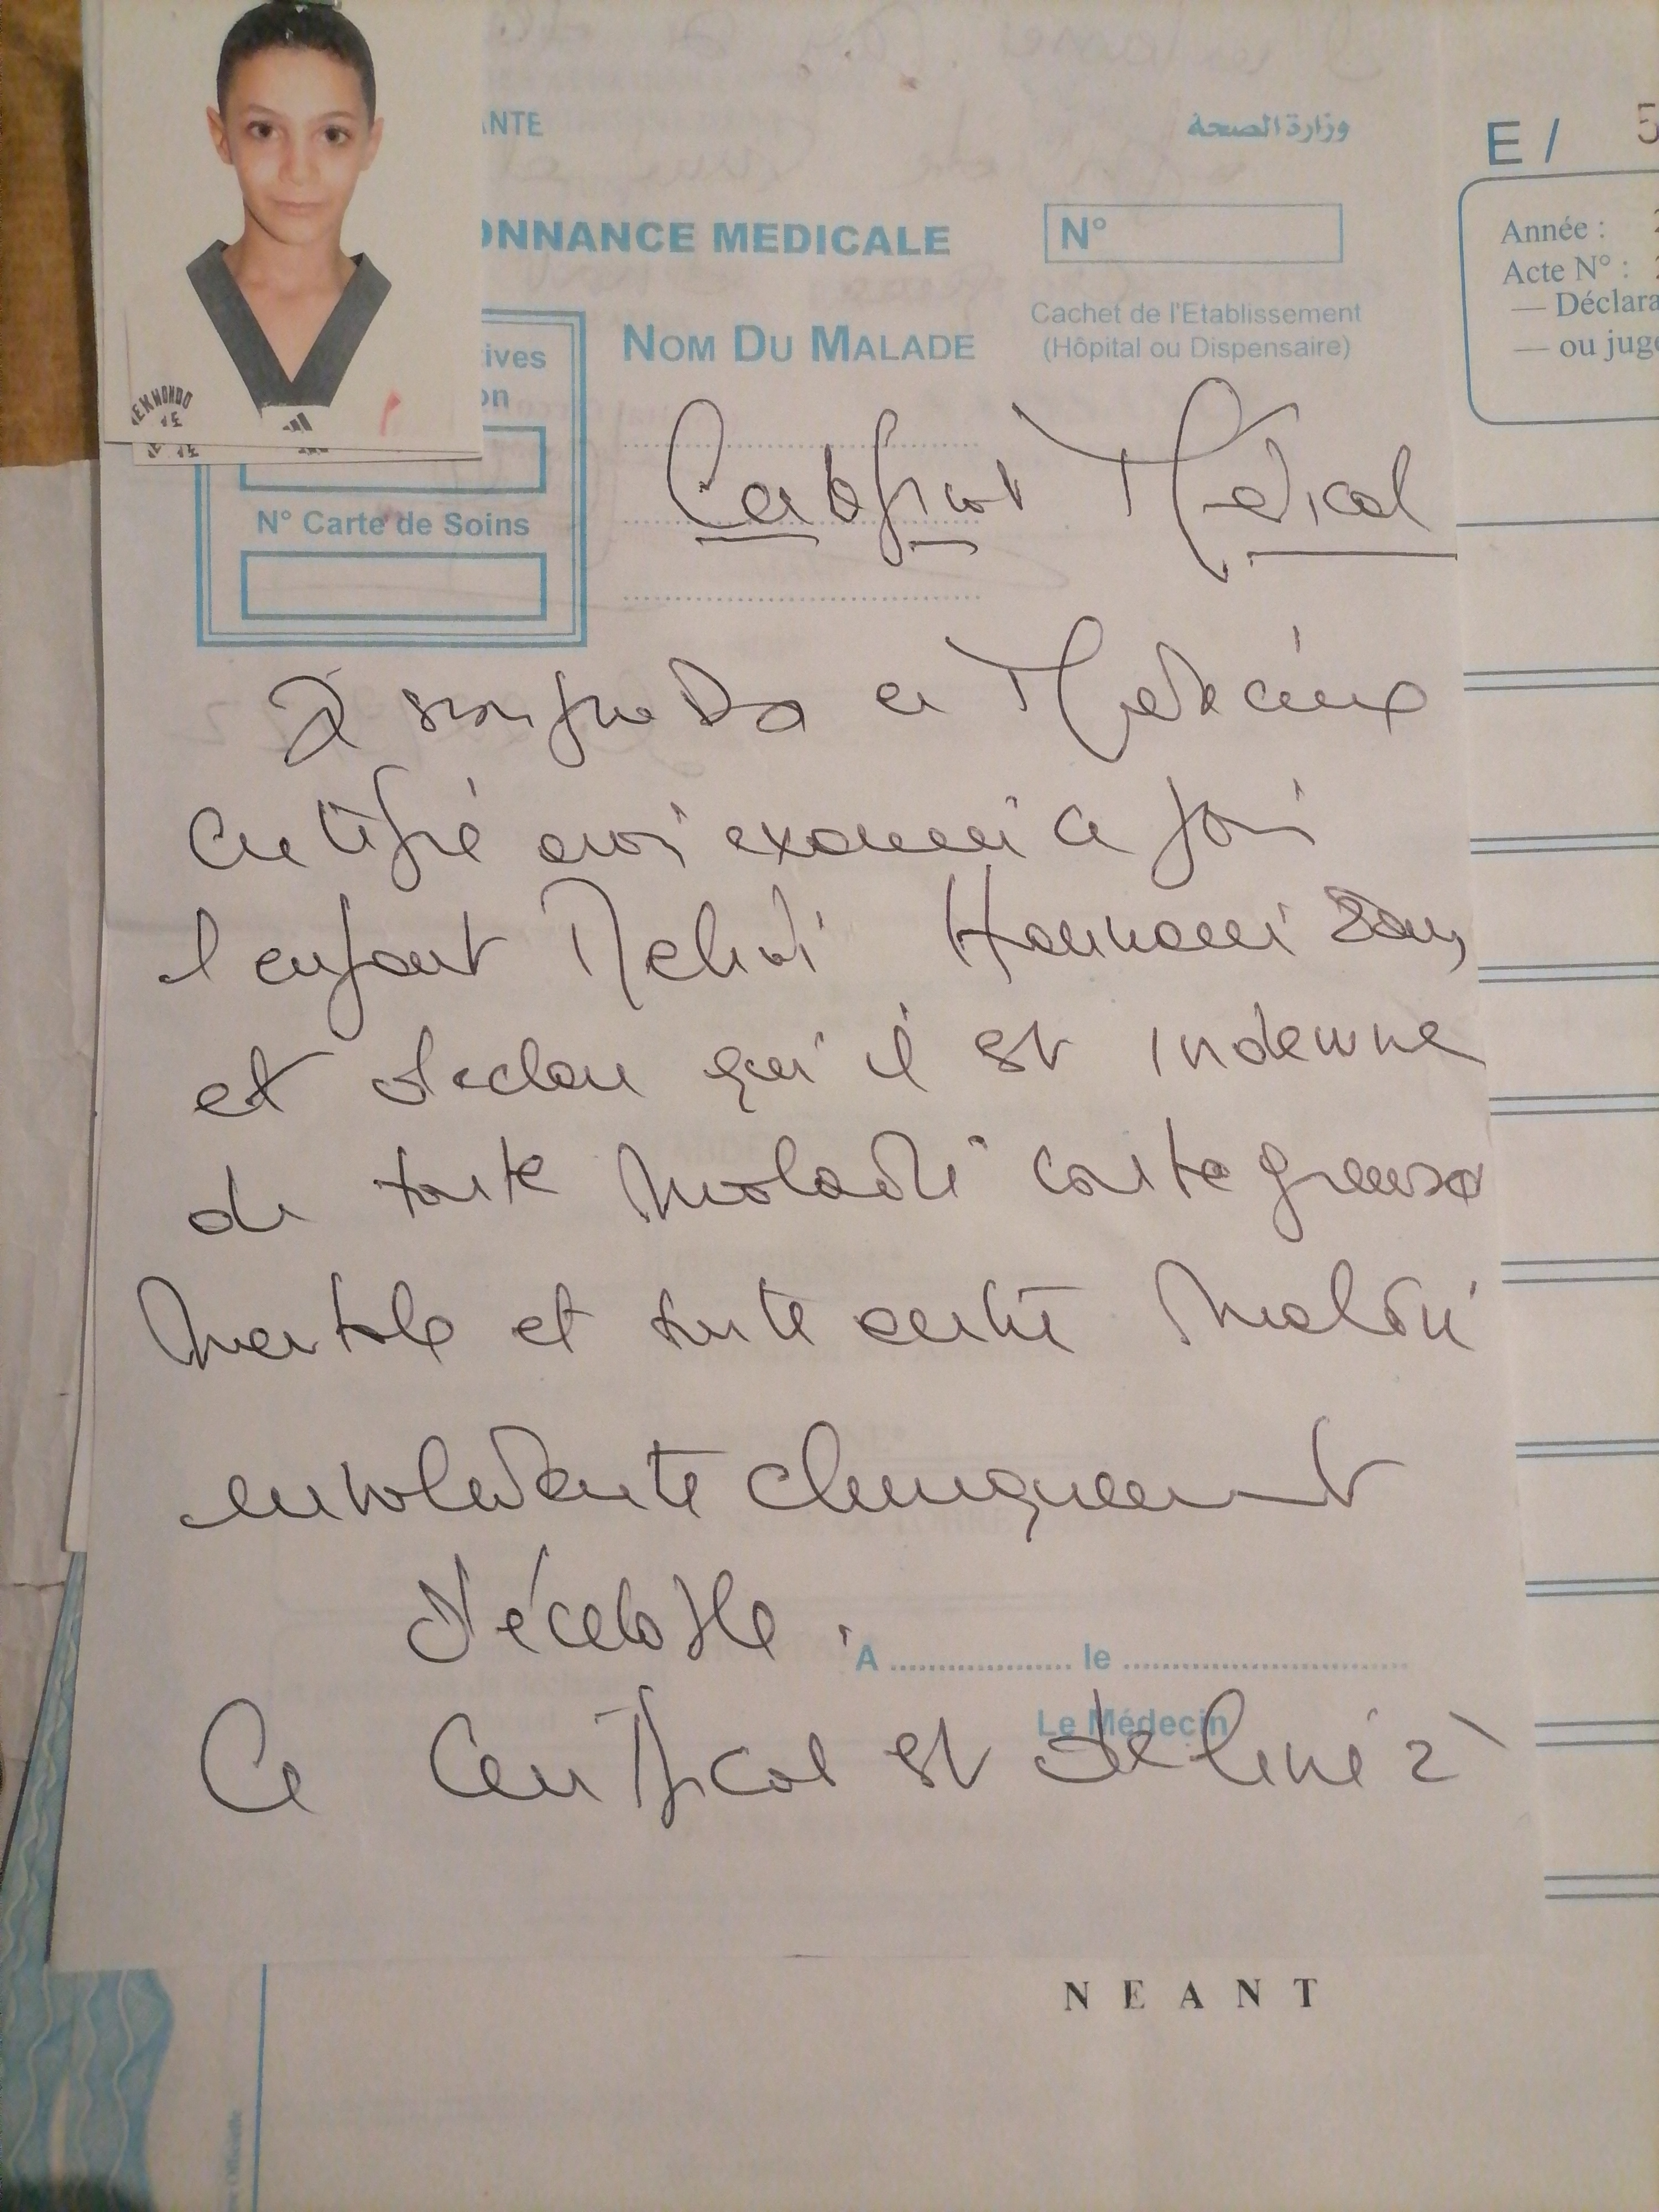 ANTE
وزارة الصحة
E / 5
ONNANCE MEDICALE
N°
Année :
Acte N° :
— Déclara
— ou juge
Cachet de l'Etablissement
(Hôpital ou Dispensaire)
NOM DU MALADE
ives
on
N° Carte de Soins
Certificat Médical
Je soussigné Dr en Médecine
certifie avoir examiné ce jour
l'enfant Mehdi
et déclare qu'il est indemne
de toute maladie contagieuse
mentale et toute autre maladie
invalidante cliniquement
décelable.
A .................... le ..............................
Le Médecin
Ce certificat est délivré à
N E A N T